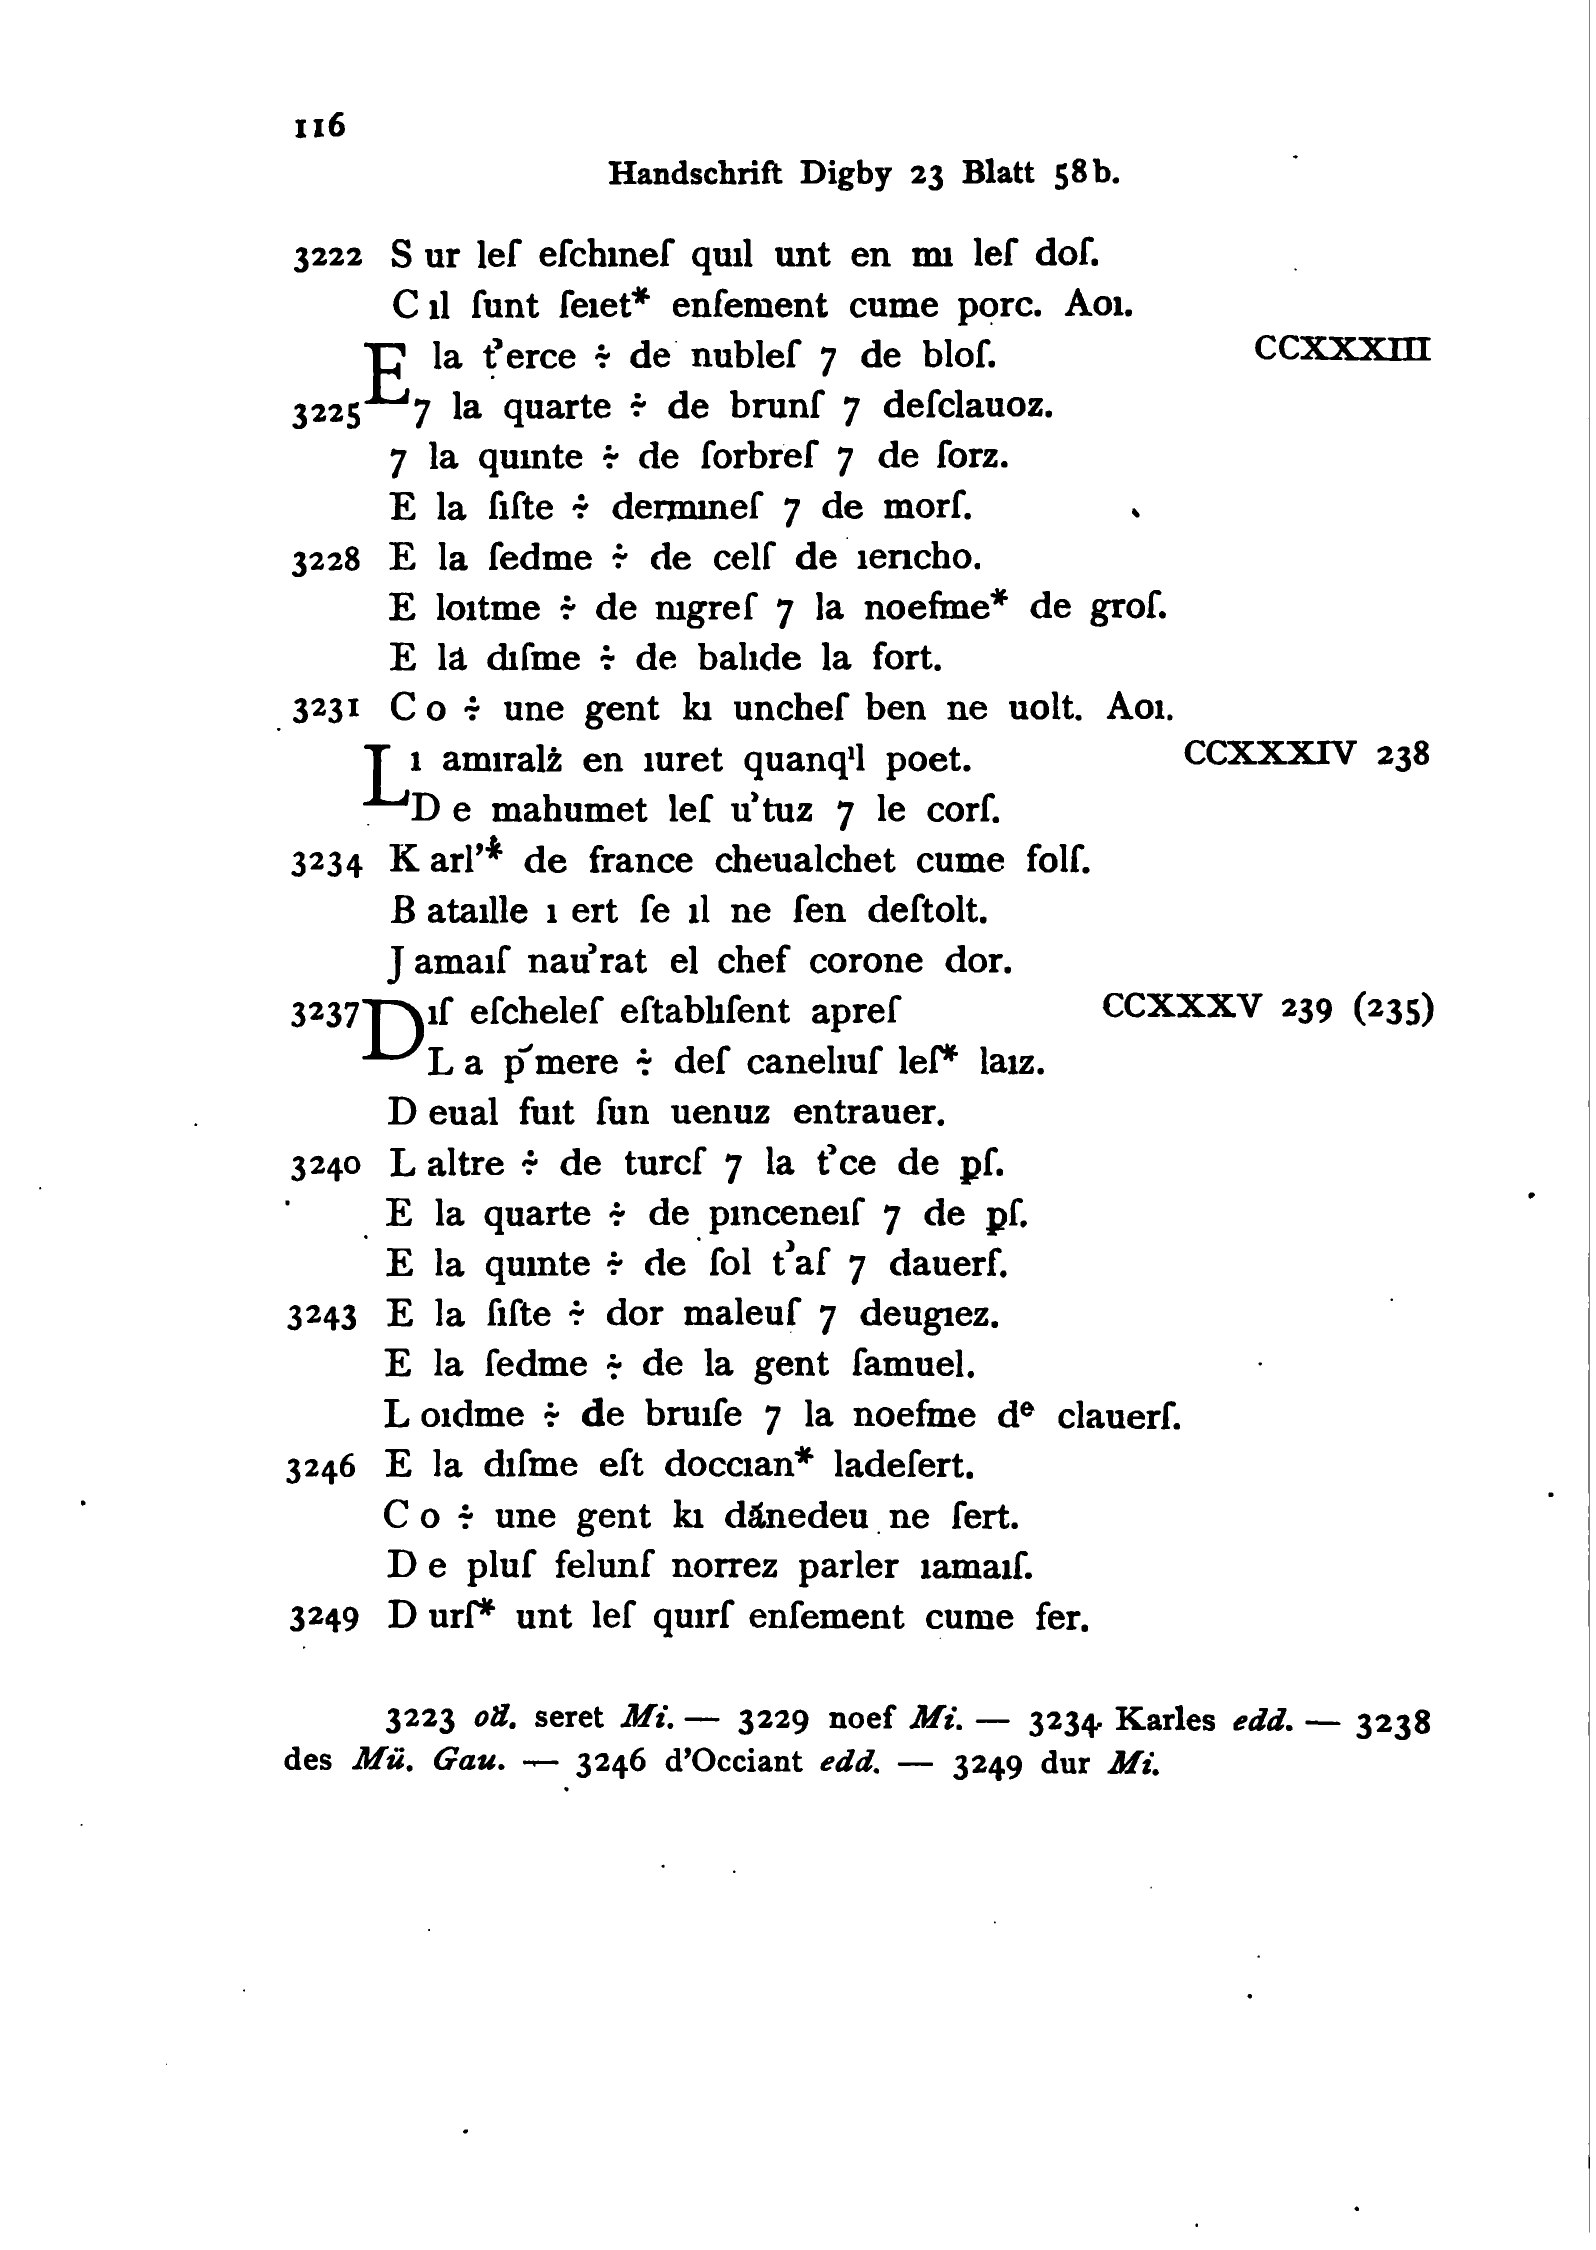 116
Handschrift Digby 23 Blatt 58b.
3222 S ur leſ eſchıneſ quıl unt en mı leſ doſ.
C ıl ſunt ſeıet* enſement cume porc. Aoı.
E la t’erce ÷ de nubleſ 7 de bloſ. CCXXXIII
3225 7 la quarte ÷ de brunſ 7 deſclauoz.
7 la quınte ÷ de ſorbreſ 7 de ſorz.
E la ſıſte ÷ dermıneſ 7 de morſ.
3228 E la ſedme ÷ de celſ de ıerıcho.
E loıtme ÷ de nıgreſ 7 la noefme* de groſ.
E la dıſme ÷ de balıde la fort.
3231 C o ÷ une gent kı uncheſ ben ne uolt. Aoı.
L ı amıralż en ıuret quanqˡl poet. CCXXXIV 238
D e mahumet leſ u’tuz 7 le corſ.
3234 K arl’* de france cheualchet cume folſ.
B ataılle ı ert ſe ıl ne ſen deſtolt.
J amaıſ nau’rat el chef corone dor.
3237 D ıſ eſcheleſ eſtablıſent apreſ CCXXXV 239 (235)
L a p̄mere ÷ deſ canelıuſ leſ* laız.
D eual fuıt ſun uenuz entrauer.
3240 L altre ÷ de turcſ 7 la t’ce de ꝑſ.
E la quarte ÷ de pınceneıſ 7 de ꝑſ.
E la quınte ÷ de ſol t’aſ 7 dauerſ.
3243 E la ſıſte ÷ dor maleuſ 7 deugıez.
E la ſedme ÷ de la gent ſamuel.
L oıdme ÷ de bruıſe 7 la noefme dᵉ clauerſ.
3246 E la dıſme eſt doccıan* ladeſert.
C o ÷ une gent kı dãnedeu ne ſert.
D e pluſ felunſ norrez parler ıamaıſ.
3249 D urſ* unt leſ quırſ enſement cume fer.
3223 od. seret Mi. — 3229 noef Mi. — 3234 Karles edd. — 3238
des Mü. Gau. — 3246 d'Occiant edd. — 3249 dur Mi.